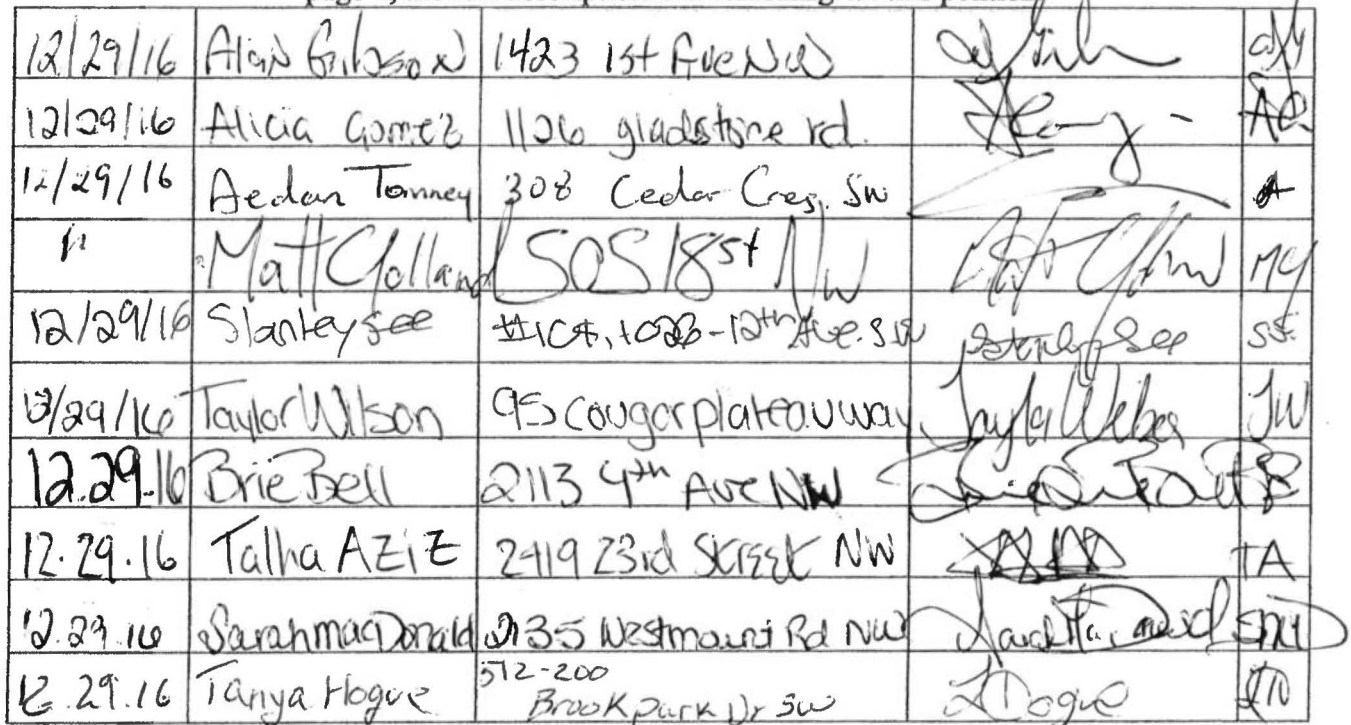 12/29/16 Alan Gibson 1423 1st Ave NW
12/29/16 Alicia Gomez 1126 gladstone rd.
12/29/16 Aedan Tomney 308 Cedar Cres. SW A
11 Matt Golland 505 18 st NW MG
12/29/16 Stanley See -12th Ave. SW Stanley See SS.
12/29/16 Taylor Wilson 95 cougar plateau way JW
12.29.16 Brie Bell 2113 4th Ave NW
12.29.16 Talha AZiZ 2419 23rd Street NW TA
12.29.16 Sarah macDonald 2135 Westmount Rd NW SMD
12.29.16 Tanya Hogue 512-200
Brookpark Dr SW